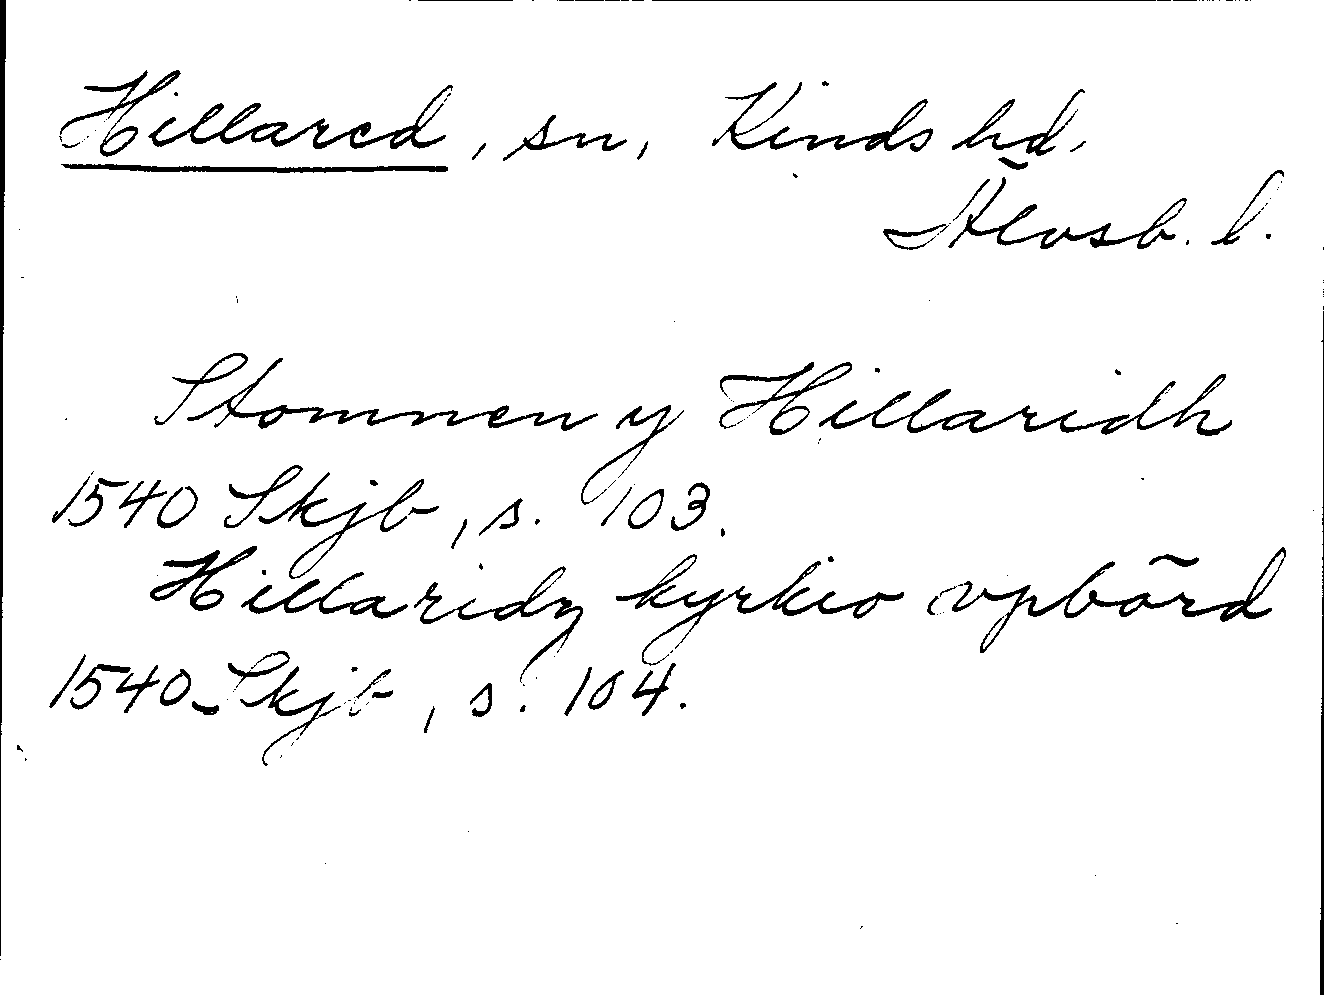 Hillared, sn, Kinds hd,
Älvsb. l.
Stommen y Hillaridh
1540 Skjb, s. 103.
Hillaridz kyrkio vpbörd
1540 Skjb, s. 104.